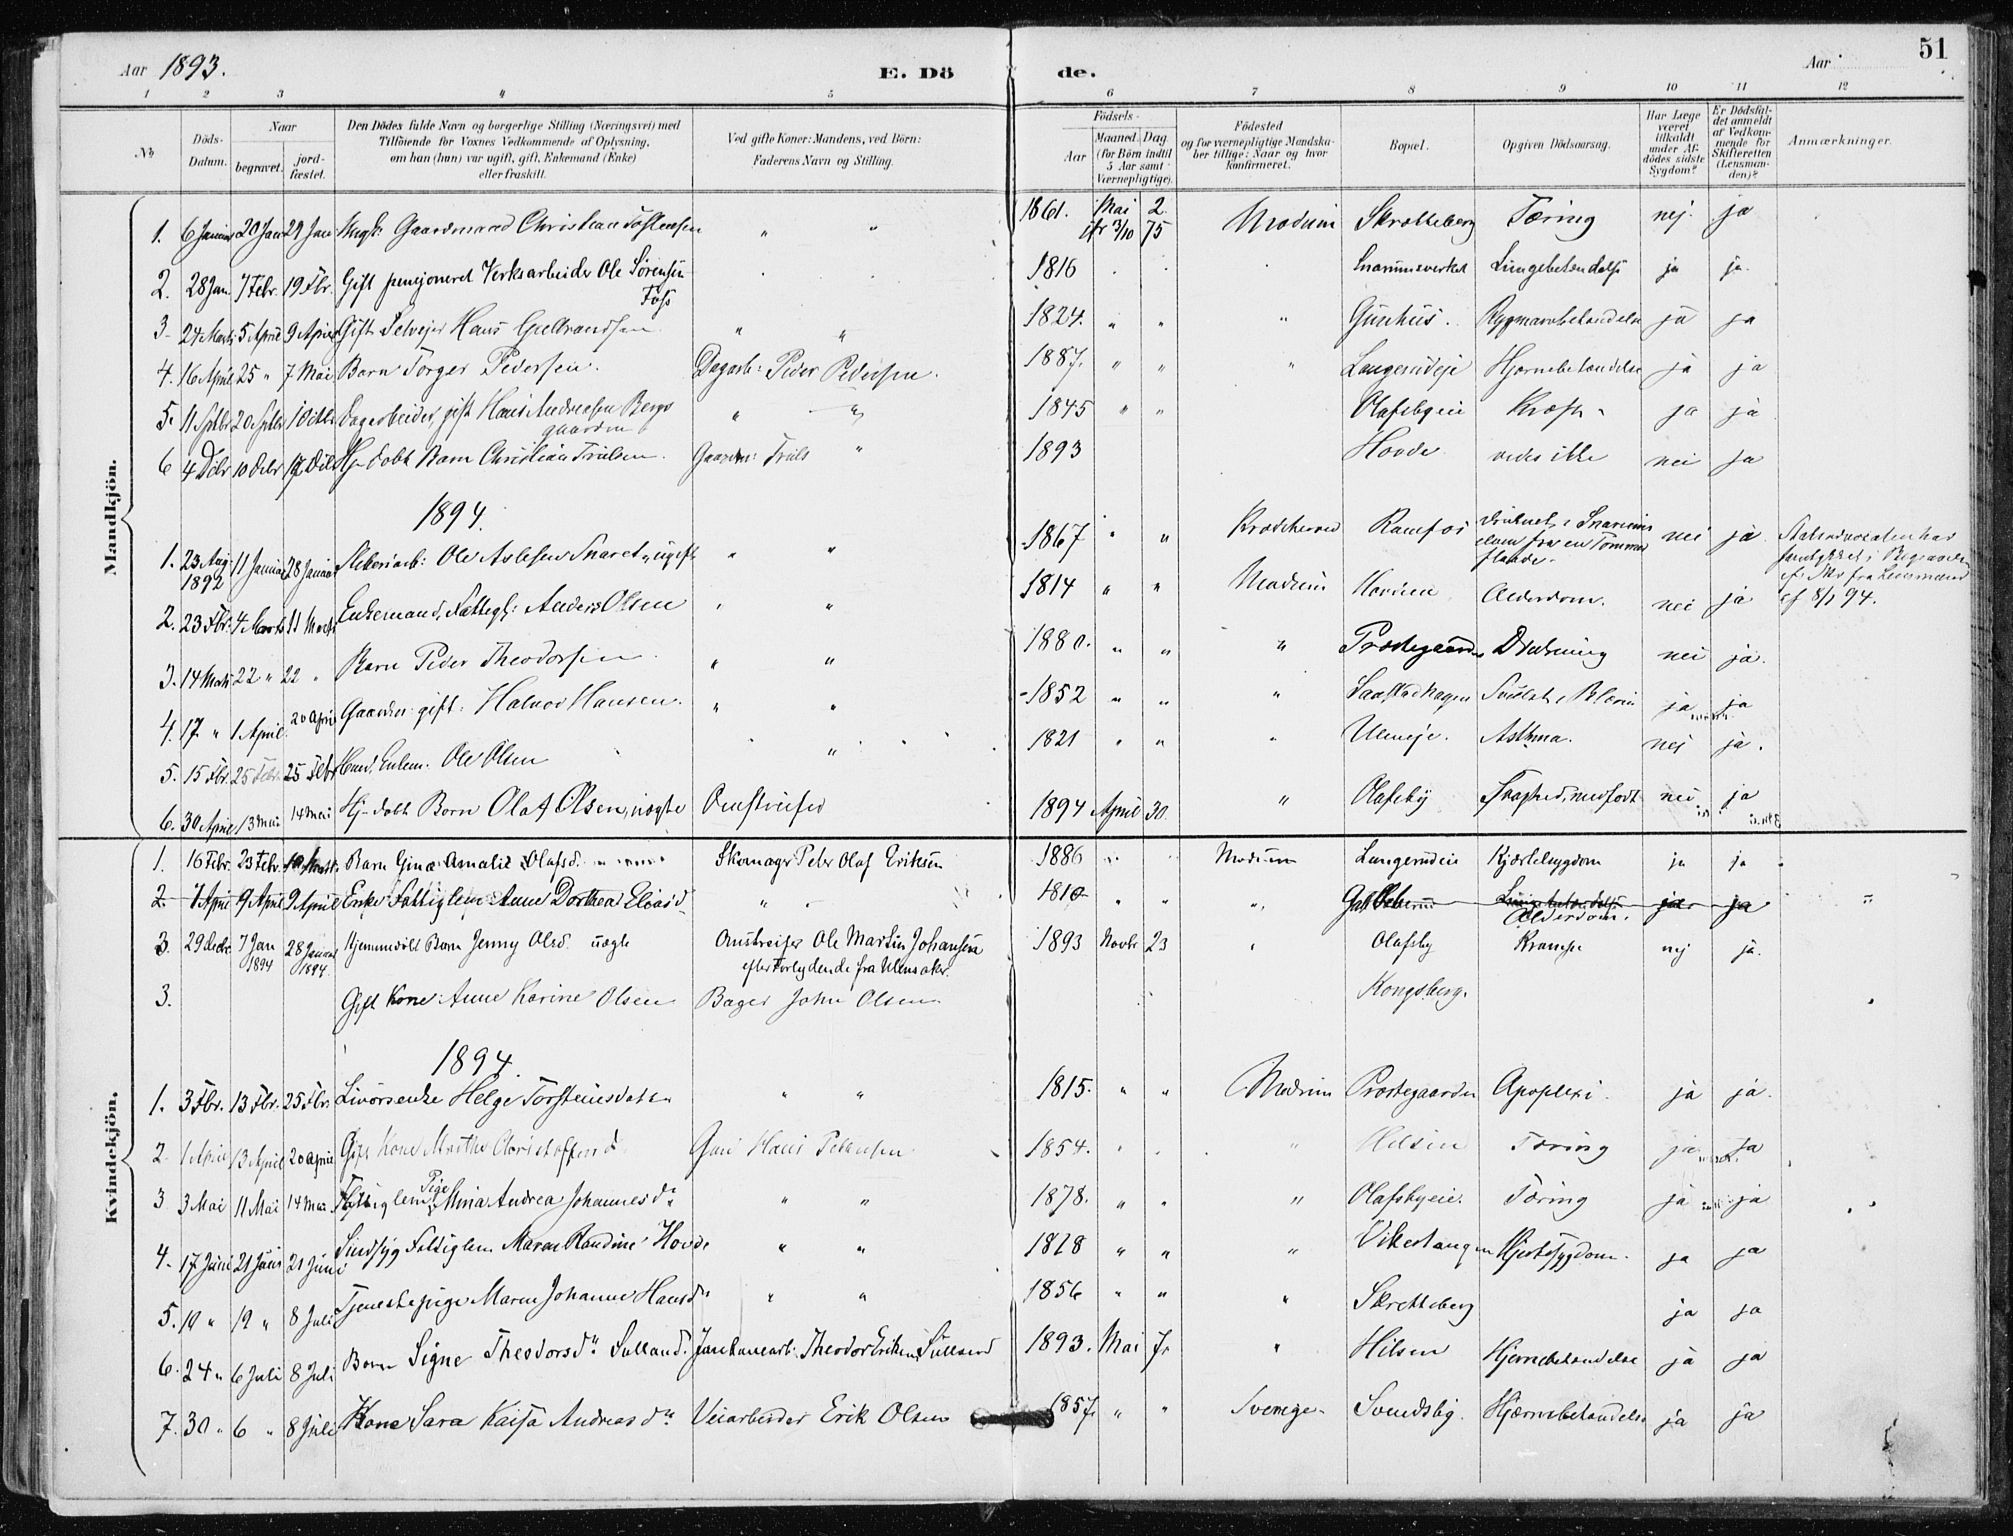 Aar 1893.
E. Dö de.
Aar
51
1 2 3 4 5 6 7 8 9 10 11 12
No
Döds-Datum.
Naar
begravet.
jord-fæstet.
Den Dödes fulde Navn og borgerlige Stilling (Næringsvei) med
Tilföiende for Voxnes Vedkommende af Oplysning,
om han (hun) var ugift, gift, Enkemand (Enke)
eller fraskilt.
Ved gifte Koner: Mandens, ved Börn:
Faderens Navn og Stilling.
Födsels-
Aar
Maaned. Dag.
(for Börn indtil
5 Aar samt
Værnepligtige).
Födested
og for værnepligtige Mandska-
ber tillige: Naar og hvor
konfirmeret.
Bopæl.
Opgiven Dödsaarsag.
Har Læge
været
tilkaldt
under Af-
dödes sidste
Sygdom?
Er Dödsfal-
det anmeldt
af Vedkom-
mende for
Skifteretten
(Lensman-
den)?
Anmærkninger.
Mandkjön.
1. 6 Januar 20 Jan 29 Jan Ungk: Gaardmand Christian Tostensen " " 1861. Mai 2. Modum Skrotteberg Tæring nej. ja
3/10 75
2. 28 Jan. 7 Febr. 19 Fbr. Gift pensjoneret Verksarbeider Ole Sörensen 1816 Snarumsverket Lungebetændelse ja ja.
Foss
3. 24 Marts 5 April 9 April Gift Selvejer Hans Gulbrandsen " " 1824. " " " Gunhus. Rygmarvbetændelse ja ja
4. 16 April 25 " 7 Mai Barn Torger Pedersen. Dagarb: Peder Pedersen. 1887. " " " Langerudeje Hjernebetændelse ja ja
5. 11 Sptbr 20 Sptbr 1 Oktbr Dagarbeider, gift Hans Andreasen Bergs " " 1845 " " Olafsbyeie Kræft ja ja
gaarden
6 4 Debr 10 Debr 17 Debr Hj-døbt Barn Christian Trulsen. Gaardm: Truls " 1893 Hovde vides ikke nei ja
1894.
1. 23 Aug. 11 Januar 28 Januar Ole Aslesen Snaret, ugift " " 1867 " " Krødsherred Ramfos druknet i Snarums nei ja.
1892
elven fra en Tømmer
flaade.
fra Lensmand
af 8/1 94.
2. 23 Fbr. 4 Marts 11 Marts Enkemand, Fattigl: Anders Olsen " " 1814 " " Modum Alderdom. nei ja
3. 14 Marts 22 " 22 " Barn Peder Theodorsen. " " 1880. " " " Præstegaarden Drukning nei ja.
4. 17 " 1 April. 20 April Gaardm. gift: Halvor Hansen. " " 1852 " " " Saastadhagen ja ja
5. 15 Fbr. 25 Febr. 25 Febr Enkem. Ole Olsen " 1821 " " " Ulleneje. Asthma. nej ja.
6. 30 April 13 Mai 14 Mai Hj-døbt Barn Olaf Olsen, uægte Omstreifer 1894 April 30. " Olafsby Svaghed, medfødt nei ja
Kvindekjön.
1. 16 Febr. 23 Febr. Barn Gina Amalie Olafsd. Skomager Peter Olaf Eriksen 1886 Modum Langerudeie Kjertelsygdom ja ja
2. 1 April 9 April 9 April Enke Fattiglem Anne Dorthea Eliasd. " 1810 " " " Lungebetændelse ja ja
Alderdom.
3. 29 Decbr. 7 Jan 28 Januar Hjemmedøbt Barn Jenny Olsd. uægte Omstreifer Ole Martin Johansen 1893 Novbr 23 " Olafsby Krampe nej ja.
1894 1894. efter Forlydende fra Ullensaker.
3. Gift Kone Anne Karine Olsen Bager John Olsen Kongsberg.
1894.
1. 3 Fbr. 13 Fbr. 25 Fbr. Livørsenke Helge Torsteinsdatter " " 1815. " " Modum Præstegaarden Apoplexi. ja ja.
2 1 April 13 April 20 April Gift Kone Marthe Christoffersd. Gmd Hans Pedersen 1854. " " " Hilsen Tæring ja ja
3 3 Mai 11 Mai 14 Mai Fattiglem Pige Mina Andrea Johannesdr " " 1878. " " " Olafsbyeie. Tæring ja ja
4. 17 Juni 21 Juni 21 Juni Sindsyg Fattiglem Maren Randine Hovde " " 1828 " " " Vikestangen Hjertesygdom. ja ja
5. 10 " 19 " 8 Juli Tjenestepige Maren Johanne Hansdr " " 1856 " " " Skrotteberg ja ja
6. 24 " 6 Juli 8 Juli Barn Signe Theodorsdr Sulland. Jernbanearb. Theodor Eriksen Sulland 1893. Mai 7. " Hilsen Hjernebetændelse ja ja
7. 30 " 6 " 8 Juli Kone Sara Kaisa Andreasdr Veiarbeider Erik Olsen 1857. " " Sverige. Svendsby. Hjernebetændelse ja ja